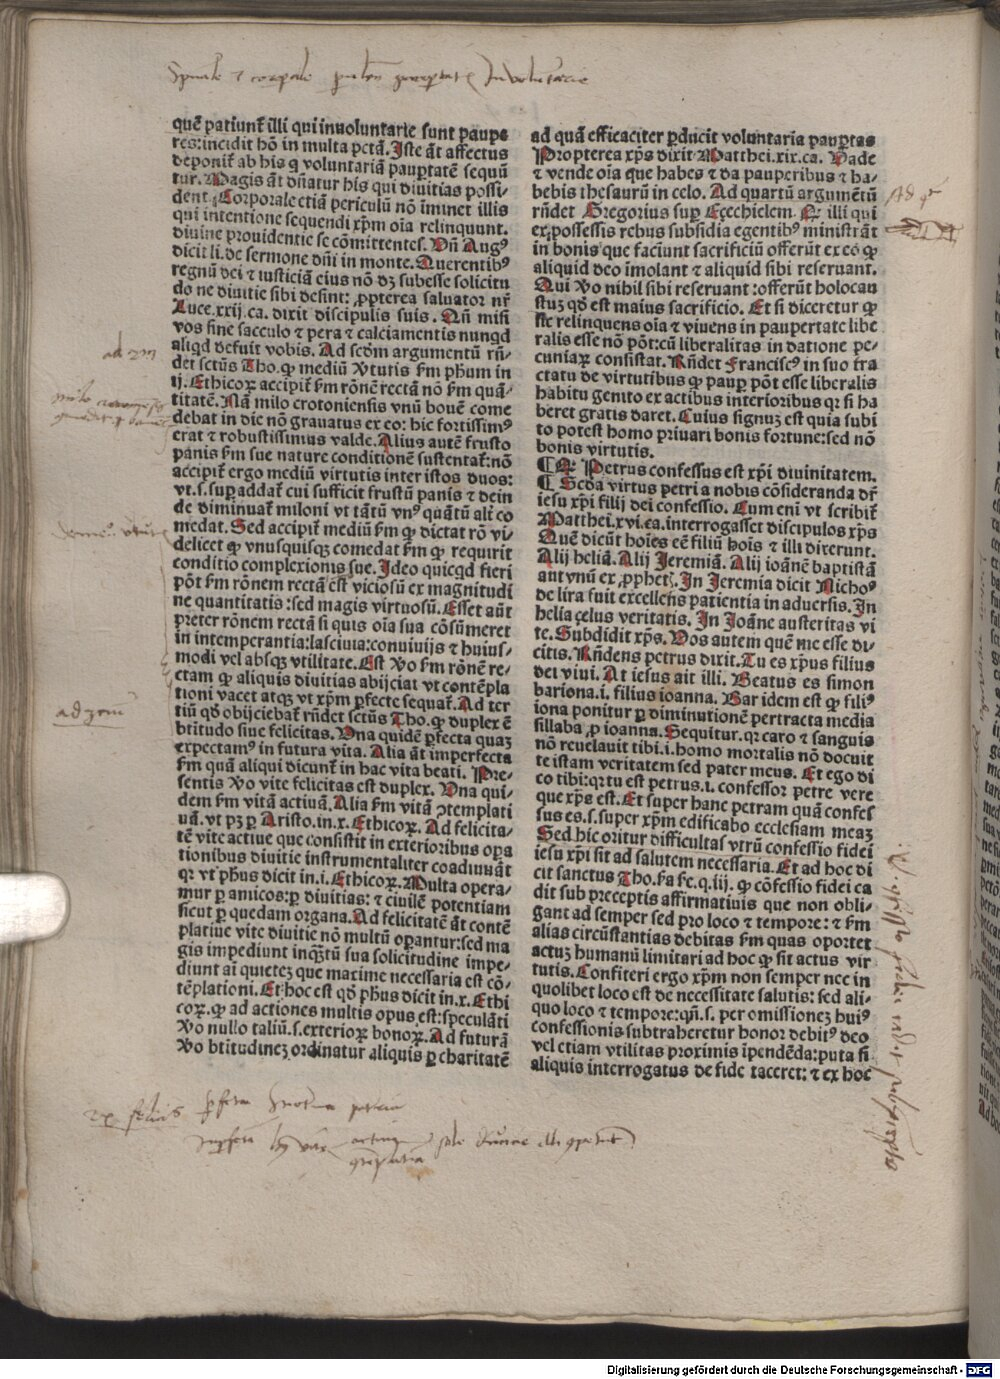 quē patiunt̄ illi qui inuoluntarie sunt paupe
res: incidit hō in multa pctā. Iste āt affectus
deponit̄ ab his q̄ voluntariā paup̄tatē sequū
tur. Magis āt dn̄atur his qui diuitias possi/
dent. Corporale etiā periculū nō īminet illis
qui intentione sequendi xp̄m oīa relinquunt.
diuine prouidentie se cōmittentes. Vn̄ Augꝰ
dicit li. de sermone dn̄i in monte. Querentibꝰ
regnū dei ⁊ iusticiā eius nō dꝫ subesse solicitu
do ne diuitie sibi desint: ꝓpterea saluator nr̄
Luce.xxij.ca. dixit discipulis suis. Qn̄ misi
vos sine sacculo ⁊ pera ⁊ calciamentis nunqd
aliqd defuit vobis. Ad scd̄m argumentū rn̄/
det sctūs Tho. ꝙ mediū v̄tutis s̄m ph̄um in
ij. Ethicoꝝ accipit̄ s̄m rōnē rectā nō s̄m quā/
titatē. Nā milo crotoniensis vnū bouē come
debat in die nō grauatus ex eo: hic fortissimꝰ
erat ⁊ robustissimus valde. Alius autē frusto
panis s̄m sue nature conditionē sustentat̄: nō
accipit̄ ergo mediū virtutis inter istos duos:
vt .s. suꝑaddat̄ cui sufficit frustū panis ⁊ dein
de diminuat̄ miloni vt tātū vnꝰ quātū alt̄ co
medat. Sed accipit̄ mediū s̄m ꝙ dictat rō vi/
delicet ꝙ vnusquisqꝫ comedat s̄m ꝙ requirit
conditio complexionis sue. Ideo quicqd fieri
pōt s̄m rōnem rectā est viciosū ex magnitudi
ne quantitatis: sed magis virtuosū. Esset aūt
preter rōnem rectā si quis oīa sua cōsūmeret
in intemperantia: lasciuia: conuiuijs ⁊ huius/
modi vel absqꝫ vtilitate. Est v̄o s̄m rōnē re/
ctam ꝙ aliquis diuitias abijciat vt contēpla
tioni vacet atqꝫ vt xp̄m ꝑfecte sequat̄. Ad ter
tiū qd̄ obijciebat̄ rn̄det sctūs Tho. ꝙ duplex ē
btitudo siue felicitas. Vna quidē ꝑfecta quaꝫ
expectamꝰ in futura vita. Alia āt imperfecta
s̄m quā aliqui dicunt̄ in hac vita beati. Pre/
sentis v̄o vite felicitas est duplex. Vna qui/
dem s̄m vitā actiuā. Alia s̄m vitā ↄtemplati
uā. vt pꝫ ꝑ Aristo. in .x. Ethicoꝝ. Ad felicita/
tē vite actiue que consistit in exterioribus oꝑa
tionibus diuitie instrumentaliter coadiuuāt
qr vt ph̄us dicit in .i. Ethicoꝝ. Multa opera/
mur ꝑ amicos: ꝑ diuitias: ⁊ ciuilē potentiam
sicut ꝑ quedam organa. Ad felicitatē āt contē
platiue vite diuitie nō multū oꝑantur: sed ma
gis impediunt inq̄ꝫtū sua solicitudine impe/
diunt ai quieteꝫ que maxime necessaria est cō/
tēplationi. Et hoc est qd̄ ph̄us dicit in .x. Ethi
coꝝ. ꝙ ad actiones multis opus est: speculāti
v̄o nullo taliū .s. exterioꝝ bonoꝝ. Ad futurā
v̄o btitudineꝫ ordinatur aliquis ꝑ charitatē
ad quā efficaciter ꝑducit voluntaria pauꝑtas
Propterea xp̄s dixit Matthei.xix.ca. Vade
⁊ vende oīa que habes ⁊ da pauperibus ⁊ ha/
bebis thesaurū in celo. Ad quartū argumētū
rn̄det Gregorius suꝑ Eȥechielem. Qr illi qui
ex possessis rebus subsidia egentibꝰ ministrāt
in bonis que faciunt sacrificiū offerūt ex eo ꝙ
aliquid deo īmolant ⁊ aliquid sibi reseruant.
Qui v̄o nihil sibi reseruant: offerūt holocau
stuꝫ qd̄ est maius sacrificio. Et si diceretur ꝙ
iste relinquens oīa ⁊ viuens in paupertate libe
ralis esse nō pōt: cū liberalitas in datione pe/
cuniaꝝ consistat. Rn̄det Franciscꝰ in suo tra
ctatu de virtutibus ꝙ pauꝑ pōt esse liberalis
habitu genito ex actibus interioribus qr si ha
beret gratis daret. Cuius signuꝫ est quia subi
to potest homo priuari bonis fortune: sed nō
bonis virtutis.
¶ Qr Petrus confessus est xp̄i diuinitatem.
¶ Scd̄a virtus petri a nobis cōsideranda dr̄
iesu xp̄i filij dei confessio. Cum eni vt scribit̄
Matthei.xvi.ca. interrogasset discipulos xp̄s
Quē dicūt hoīes eē filiū hoīs ⁊ illi dixerunt.
Alij heliā. Alij Jeremiā. Alij ioānē baptistā
aut vnū ex ꝓphetis. In Jeremia dicit Nichoꝰ
de lira fuit excellens patientia in aduersis. In
helia çelus veritatis. In Joāne austeritas vi
te. Subdidit xp̄s. Vos autem quē me esse di/
citis. Rn̄dens petrus dixit. Tu es xp̄us filius
dei viui. At iesus ait illi. Beatus es simon
bariona .i. filius ioanna. Bar idem est ꝙ filiꝰ
iona ponitur ꝑ diminutionē pertracta media
sillaba ꝓ ioanna. Sequitur. qr caro ⁊ sanguis
nō reuelauit tibi .i. homo mortalis nō docuit
te istam veritatem sed pater meus. Et ego di
co tibi: qr tu est petrus .i. confessor petre vere
que xp̄s est. Et super hanc petram quā confes
sus es .s. super xp̄m edificabo ecclesiam meaꝫ
Sed hic oritur difficultas vtrū confessio fidei
iesu xp̄i sit ad salutem necessaria. Et ad hoc di
cit sanctus Tho. s̄a s̄e. q.iij. ꝙ cōfessio fidei ca
dit sub preceptis affirmatiuis que non obli/
gant ad semper sed pro loco ⁊ tempore: ⁊ s̄m
alias circūstantias debitas s̄m quas oportet
actuꝫ humanū limitari ad hoc ꝙ sit actus vir
tutis. Confiteri ergo xp̄m non semper nec in
quolibet loco est de necessitate salutis: sed ali/
quo loco ⁊ tempore: qn̄ .s. per omissioneꝫ huiꝰ
confessionis subtraheretur honor debitꝰ deo
vel etiam vtilitas proximis īpendēda: puta si
aliquis interrogatus de fide taceret: ⁊ ex hoc
Digitalisierung gefördert durch die Deutsche Forschungsgemeinschaft - DFG